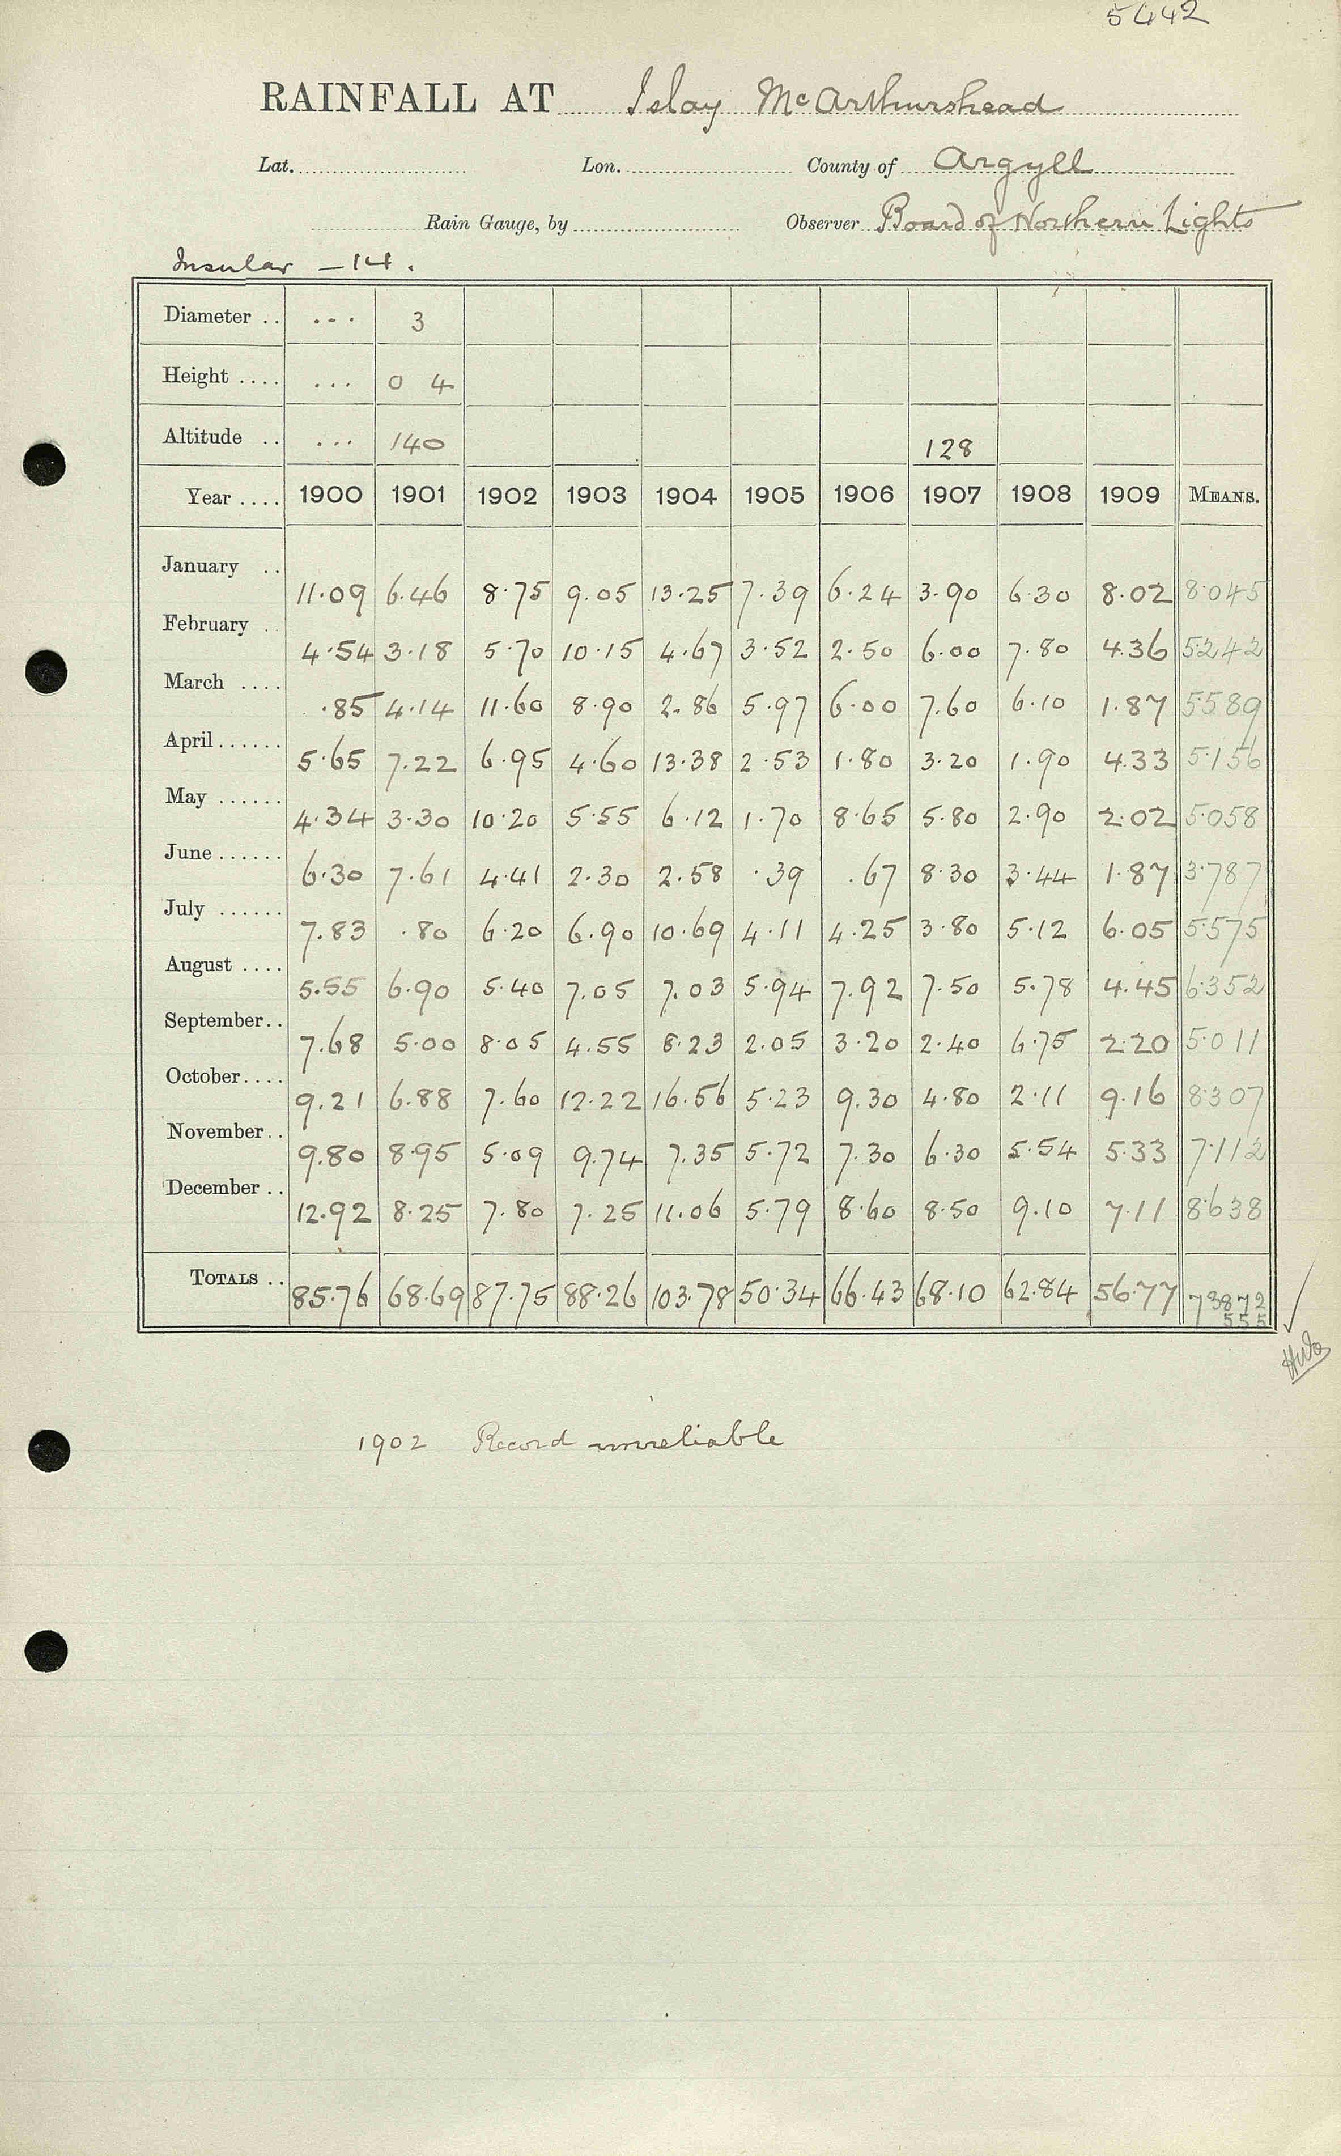 5442
RAINFALL AT Islay McArthurshead
Lat. Lon. County of Argyll
Rain Gauge, by Observer Board of Northern Lights
Insular - 14.
Diameter .. ... 3
Height .... ... 0 4
Altitude .. ... 140 128
Year .... 1900 1901 1902 1903 1904 1905 1906 1907 1908 1909 MEANS.
January .. 11.09 6.46 8.75 9.05 13.25 7.39 6.24 3.90 6.30 8.02 8.045
February .. 4.54 3.18 5.70 10.15 4.67 3.52 2.50 6.00 7.80 4.36 5.242
March .... .85 4.14 11.60 8.90 2.86 5.97 6.00 7.60 6.10 1.87 5.589
April ...... 5.65 7.22 6.95 4.60 13.38 2.53 1.80 3.20 1.90 4.33 5.156
May ...... 4.34 3.30 10.20 5.55 6.12 1.70 8.65 5.80 2.90 2.02 5.058
June ...... 6.30 7.61 4.41 2.30 2.58 .39 .67 8.30 3.44 1.87 3.787
July ...... 7.83 .80 6.20 6.90 10.69 4.11 4.25 3.80 5.12 6.05 5.575
August .... 5.55 6.90 5.40 7.05 7.03 5.94 7.92 7.50 5.78 4.45 6.352
September.. 7.68 5.00 8.05 4.55 8.23 2.05 3.20 2.40 6.75 2.20 5.011
October.... 9.21 6.88 7.60 12.22 16.56 5.23 9.30 4.80 2.11 9.16 8.307
November.. 9.80 8.95 5.09 9.74 7.35 5.72 7.30 6.30 5.54 5.33 7.112
December .. 12.92 8.25 7.80 7.25 11.06 5.79 8.60 8.50 9.10 7.11 8.638
TOTALS .. 85.76 68.69 87.75 88.26 103.78 50.34 66.43 68.10 62.84 56.77 73.872
555
1902 Record unreliable